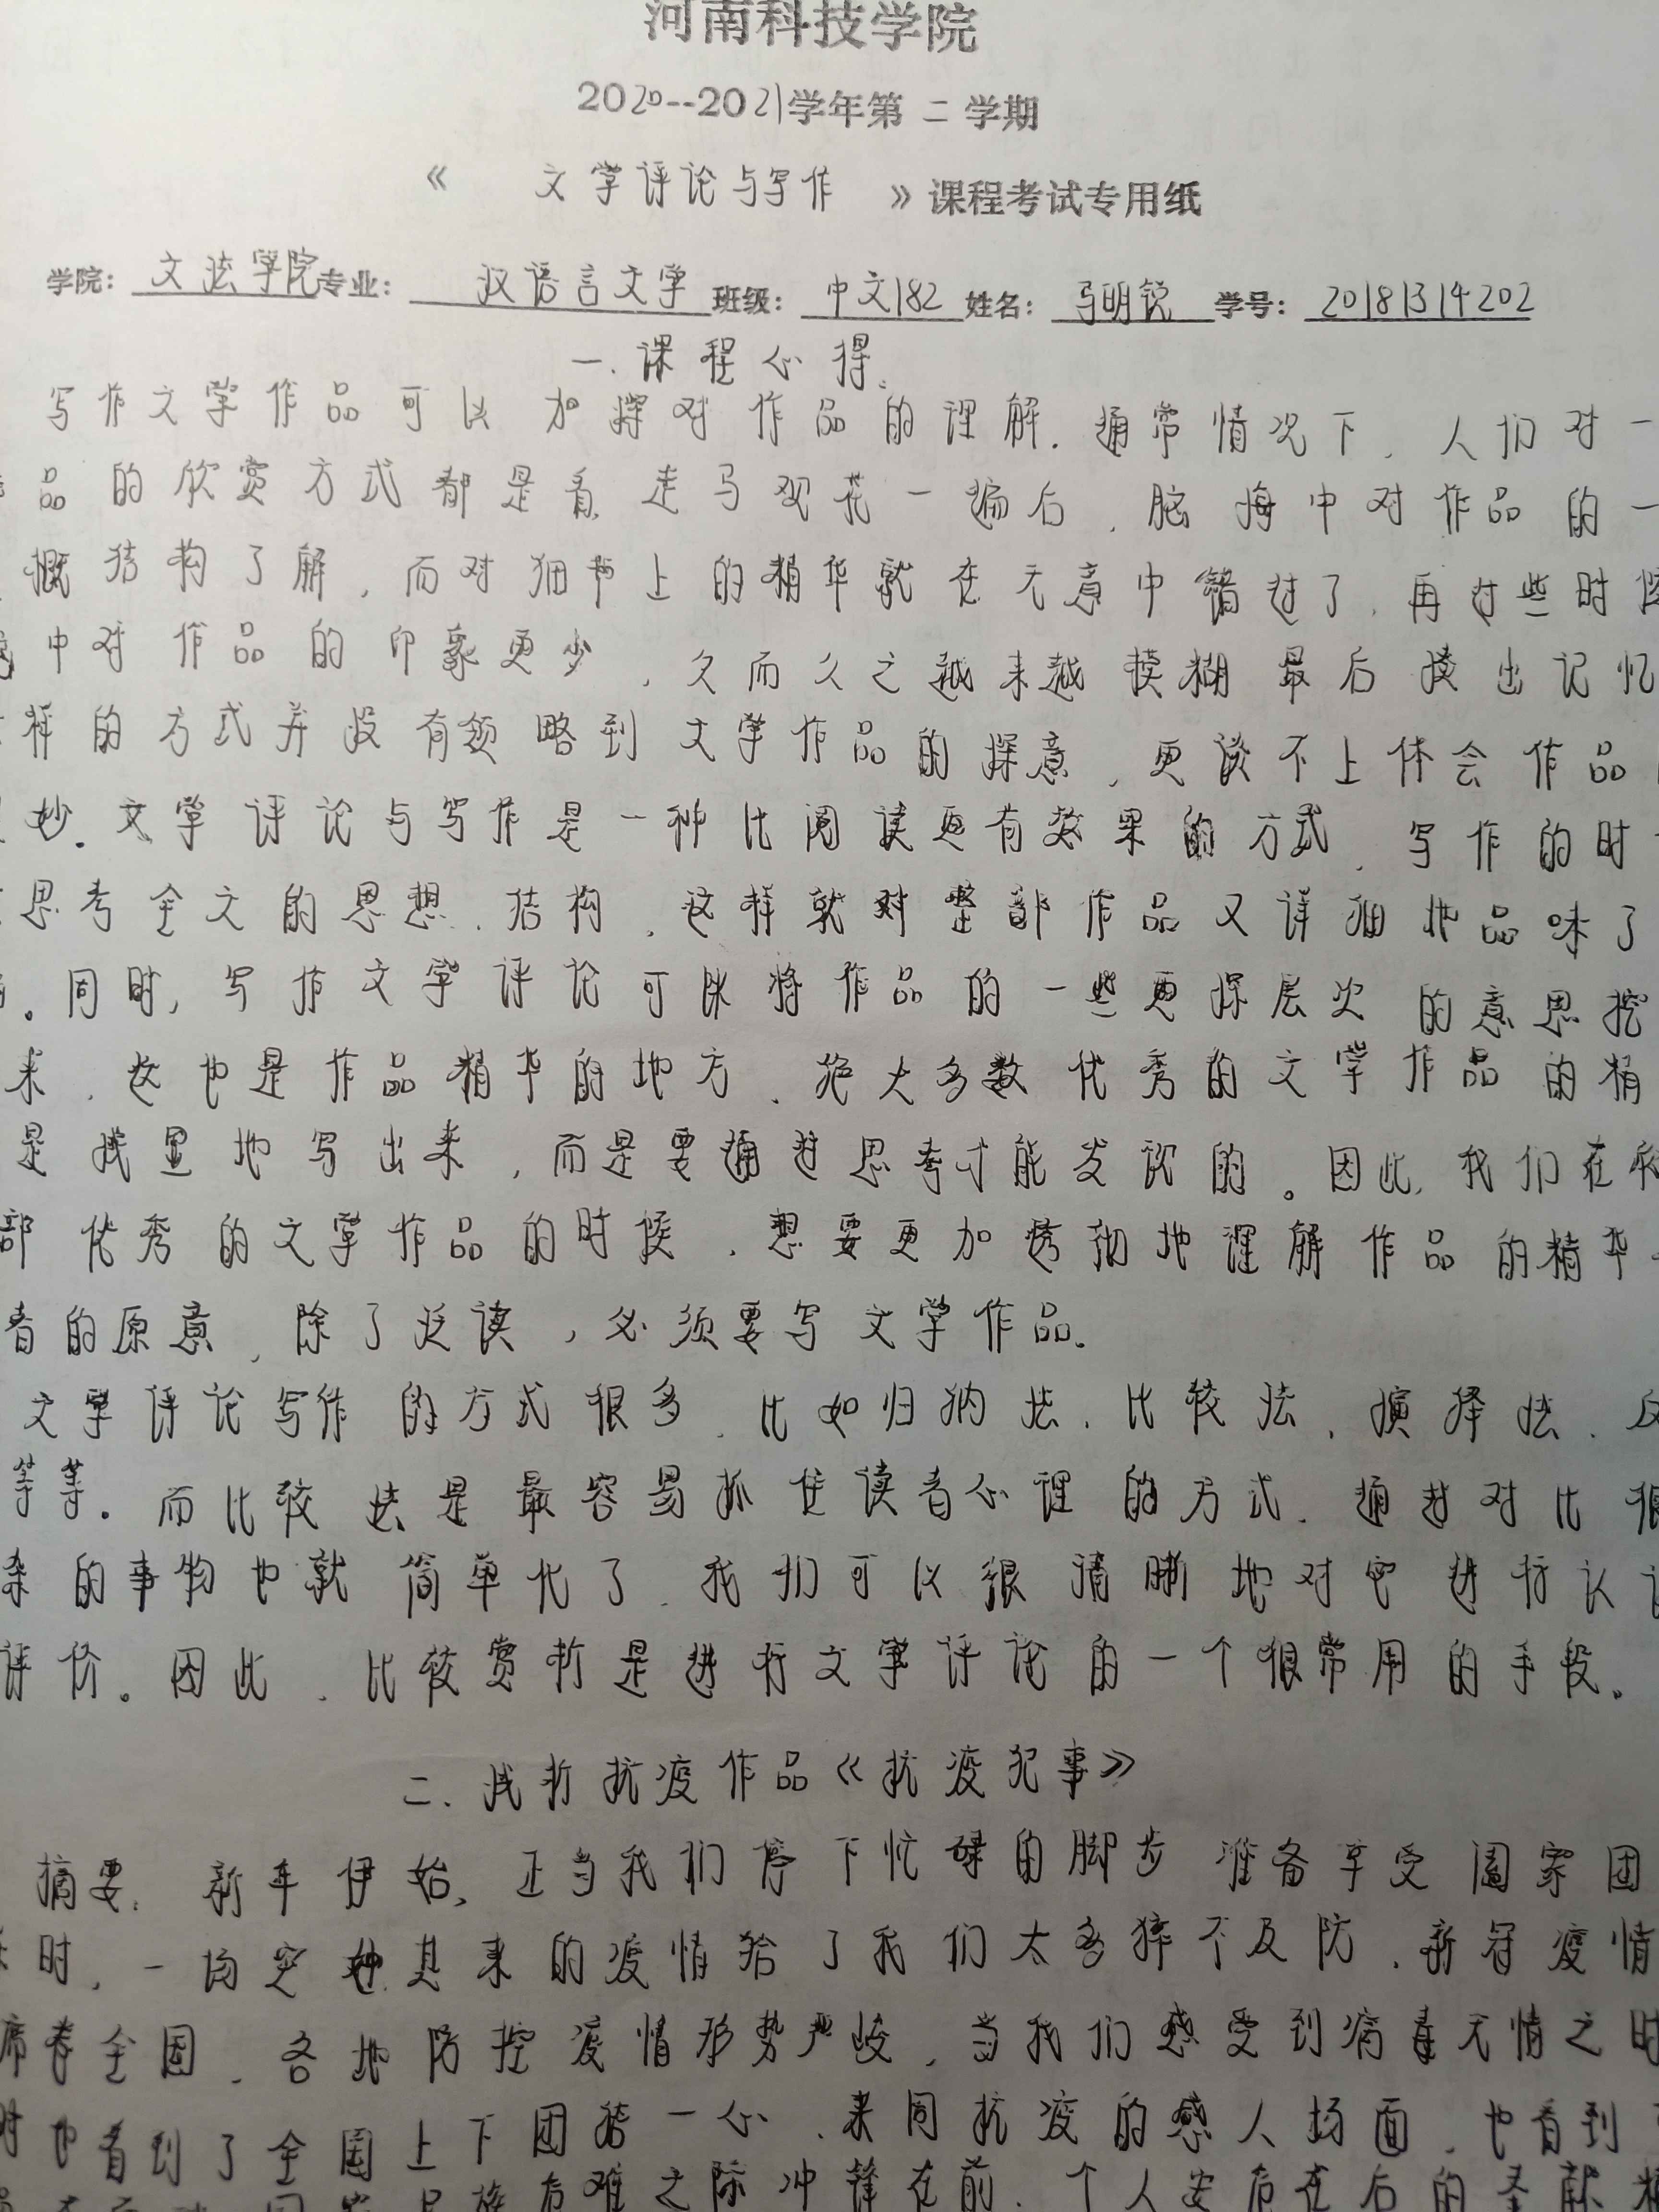 河南科技学院
2020--2021学年第 二 学期
《 文学评论与写作 》课程考试专用纸
学院: 文法学院 专业: 汉语言文学 班级: 中文182 姓名: 马明锐 学号: 20181314202
一.课程心得.
写作文学作品可以加深对作品的理解.通常情况下,人们对一
品的欣赏方式都是看,走马观花一遍后,脑海中对作品的一
概结构了解,而对细节上的精华就在无意中错过了,再过些时候
中对作品的印象更少,久而久之越来越模糊最后淡出记忆
样的方式并没有领略到文学作品的深意,更谈不上体会作品
妙.文学评论与写作是一种比阅读更有效果的方式,写作的时
思考全文的思想、结构,这样就对整部作品又详细地品味了
。同时,写作文学评论可以将作品的一些更深层次的意思挖
来,这也是作品精华的地方、绝大多数优秀的文学作品的精
是浅显地写出来,而是要通过思考才能发现的。因此,我们在
部优秀的文学作品的时候,想要更加透彻地理解作品的精华
者的原意,除了泛读,必须要写文学作品.
文学评论写作的方式很多,比如归纳法、比较法、演择法、反
等等.而比较法是最容易抓住读者心理的方式.通过对比很
杂的事物也就简单化了,我们可以很清晰地对它进行认识
评价。因此,比较赏析是进行文学评论的一个很常用的手段。
二.浅析抗疫作品《抗疫纪事》
摘要:新年伊始,正当我们停下忙碌的脚步准备享受阖家团
时,一场突如其来的疫情给了我们太多猝不及防.新冠疫情
席卷全国,各地防控疫情形势严峻,当我们感受到病毒无情之时
时也看到了全国上下团结一心、共同抗疫的感人场面,也看到
有难之际冲锋在前、个人安危在后的